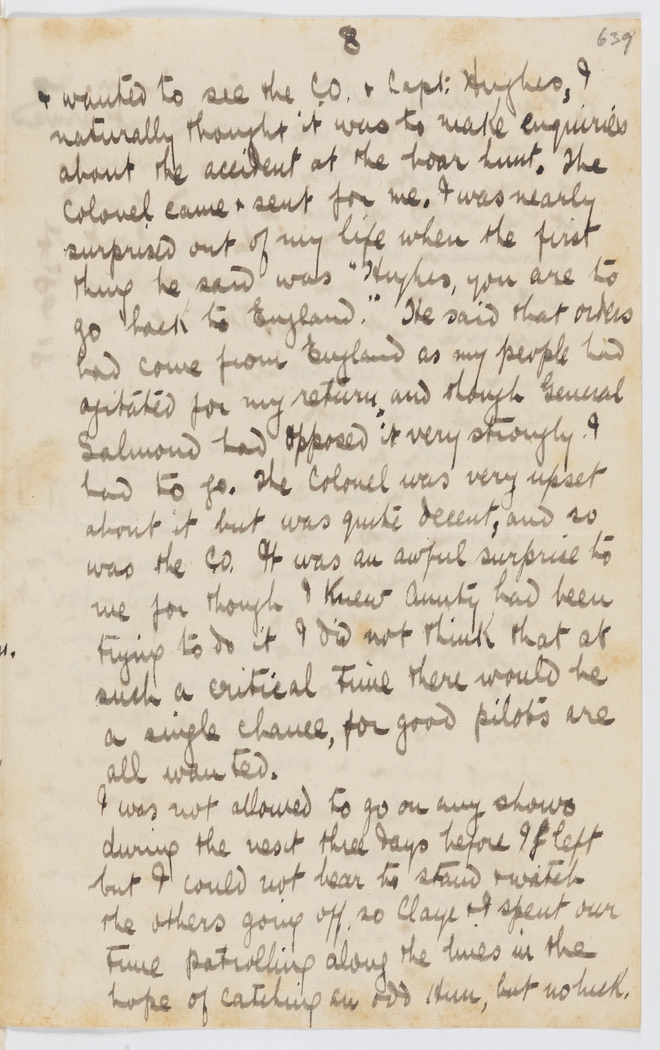 8
639
& wanted to see the CO. & Capt: Hughes, I
naturally thought it was to make enquiries
about the accident at the boar hunt. The
Colonel came & sent for me. I was nearly
surprised out of my life when the first
thing he said was "Hughes, you are to
go back to England." He said that orders
had come from England as my people had
agitated for my return, and though General
Salmond had opposed it very strongly. I
had to go. The Colonel was very upset
about it but was quite decent, and so
was the CO. It was an awful surprise to
me for though I knew Aunty had been
trying to do it I did not think that at
such a critical time there would be
a single chance, for good pilots are
all wanted.
I was not allowed to go on any shows
during the next three days before I left
but I could not bear to stand & watch
the others going off, so Claye & I spent our
time patrolling along the lines in the
hope of catching an odd Hun, but no luck.